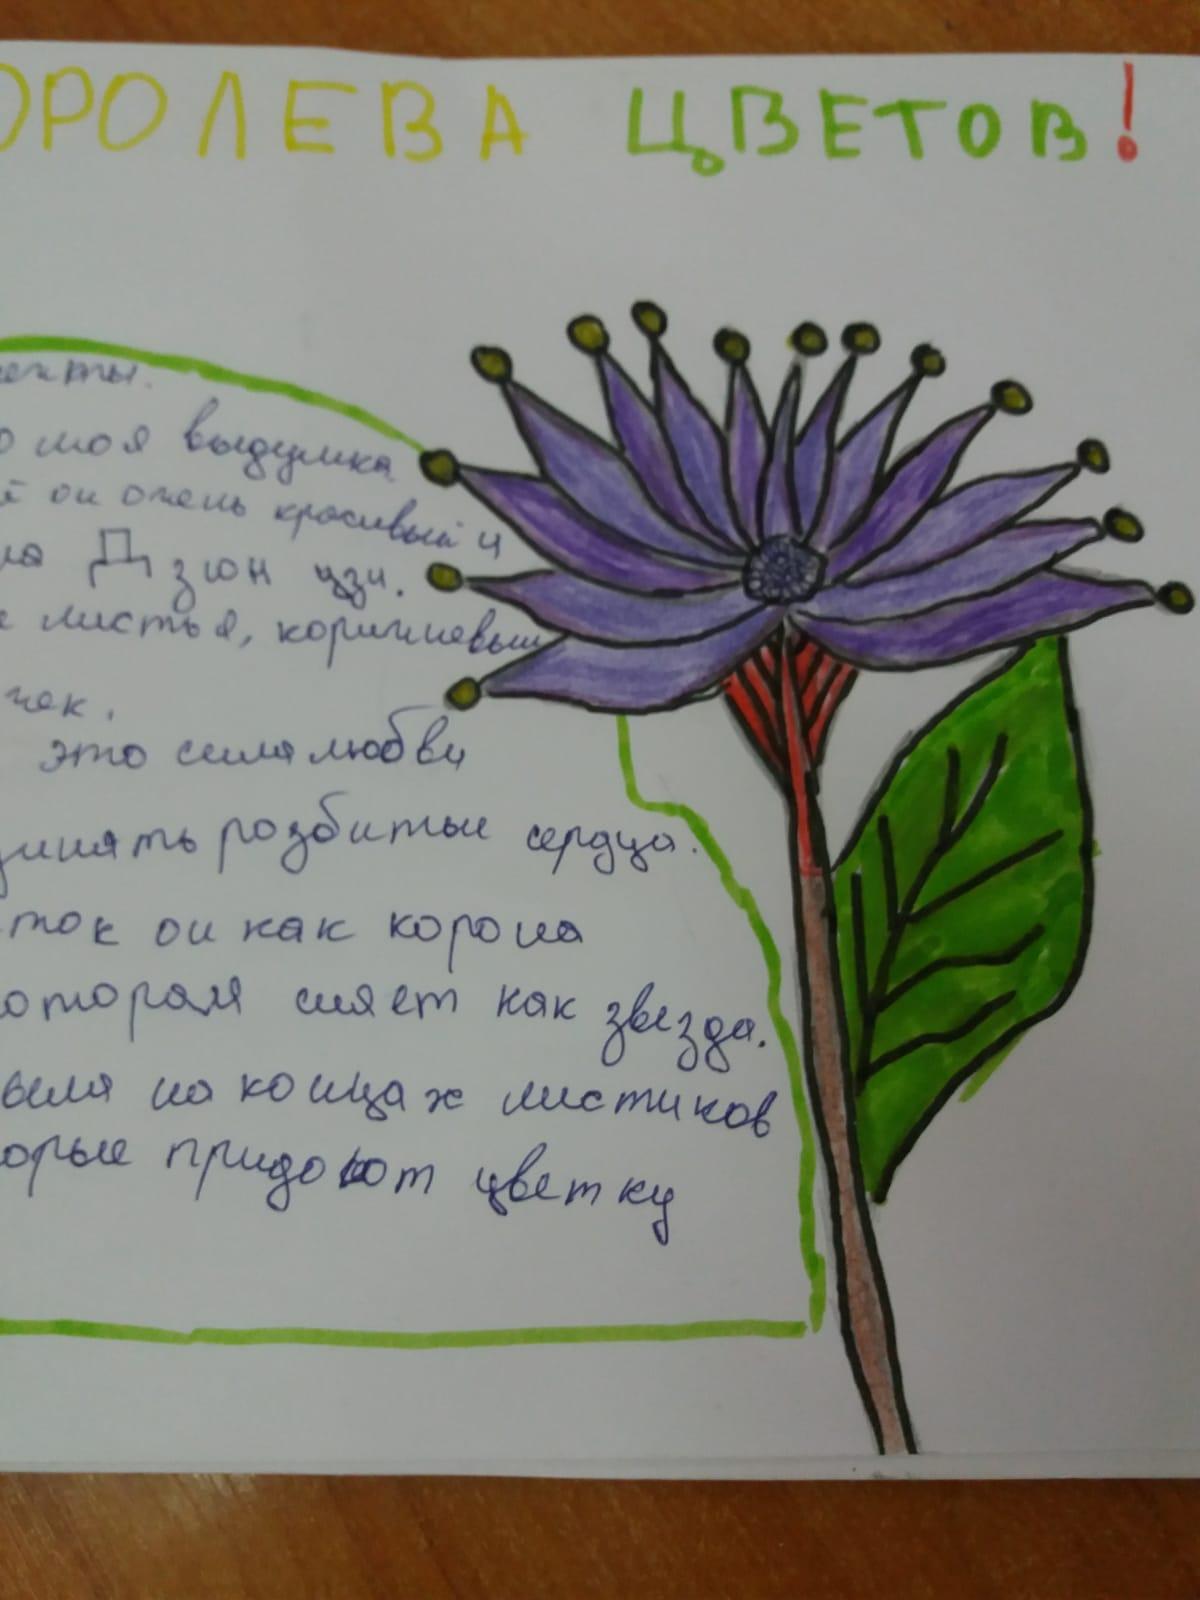 ОРОЛЕВА ЦВЕТОВ!
о моя выдумка.
й он очень красивый и
ла Дзюн цзи.
е листья, коричневый
чек.
это сила любви
розбитые сердца.
ток он как корона
оторая сияет как звезда.
на концах листиков
орые придоют цветку